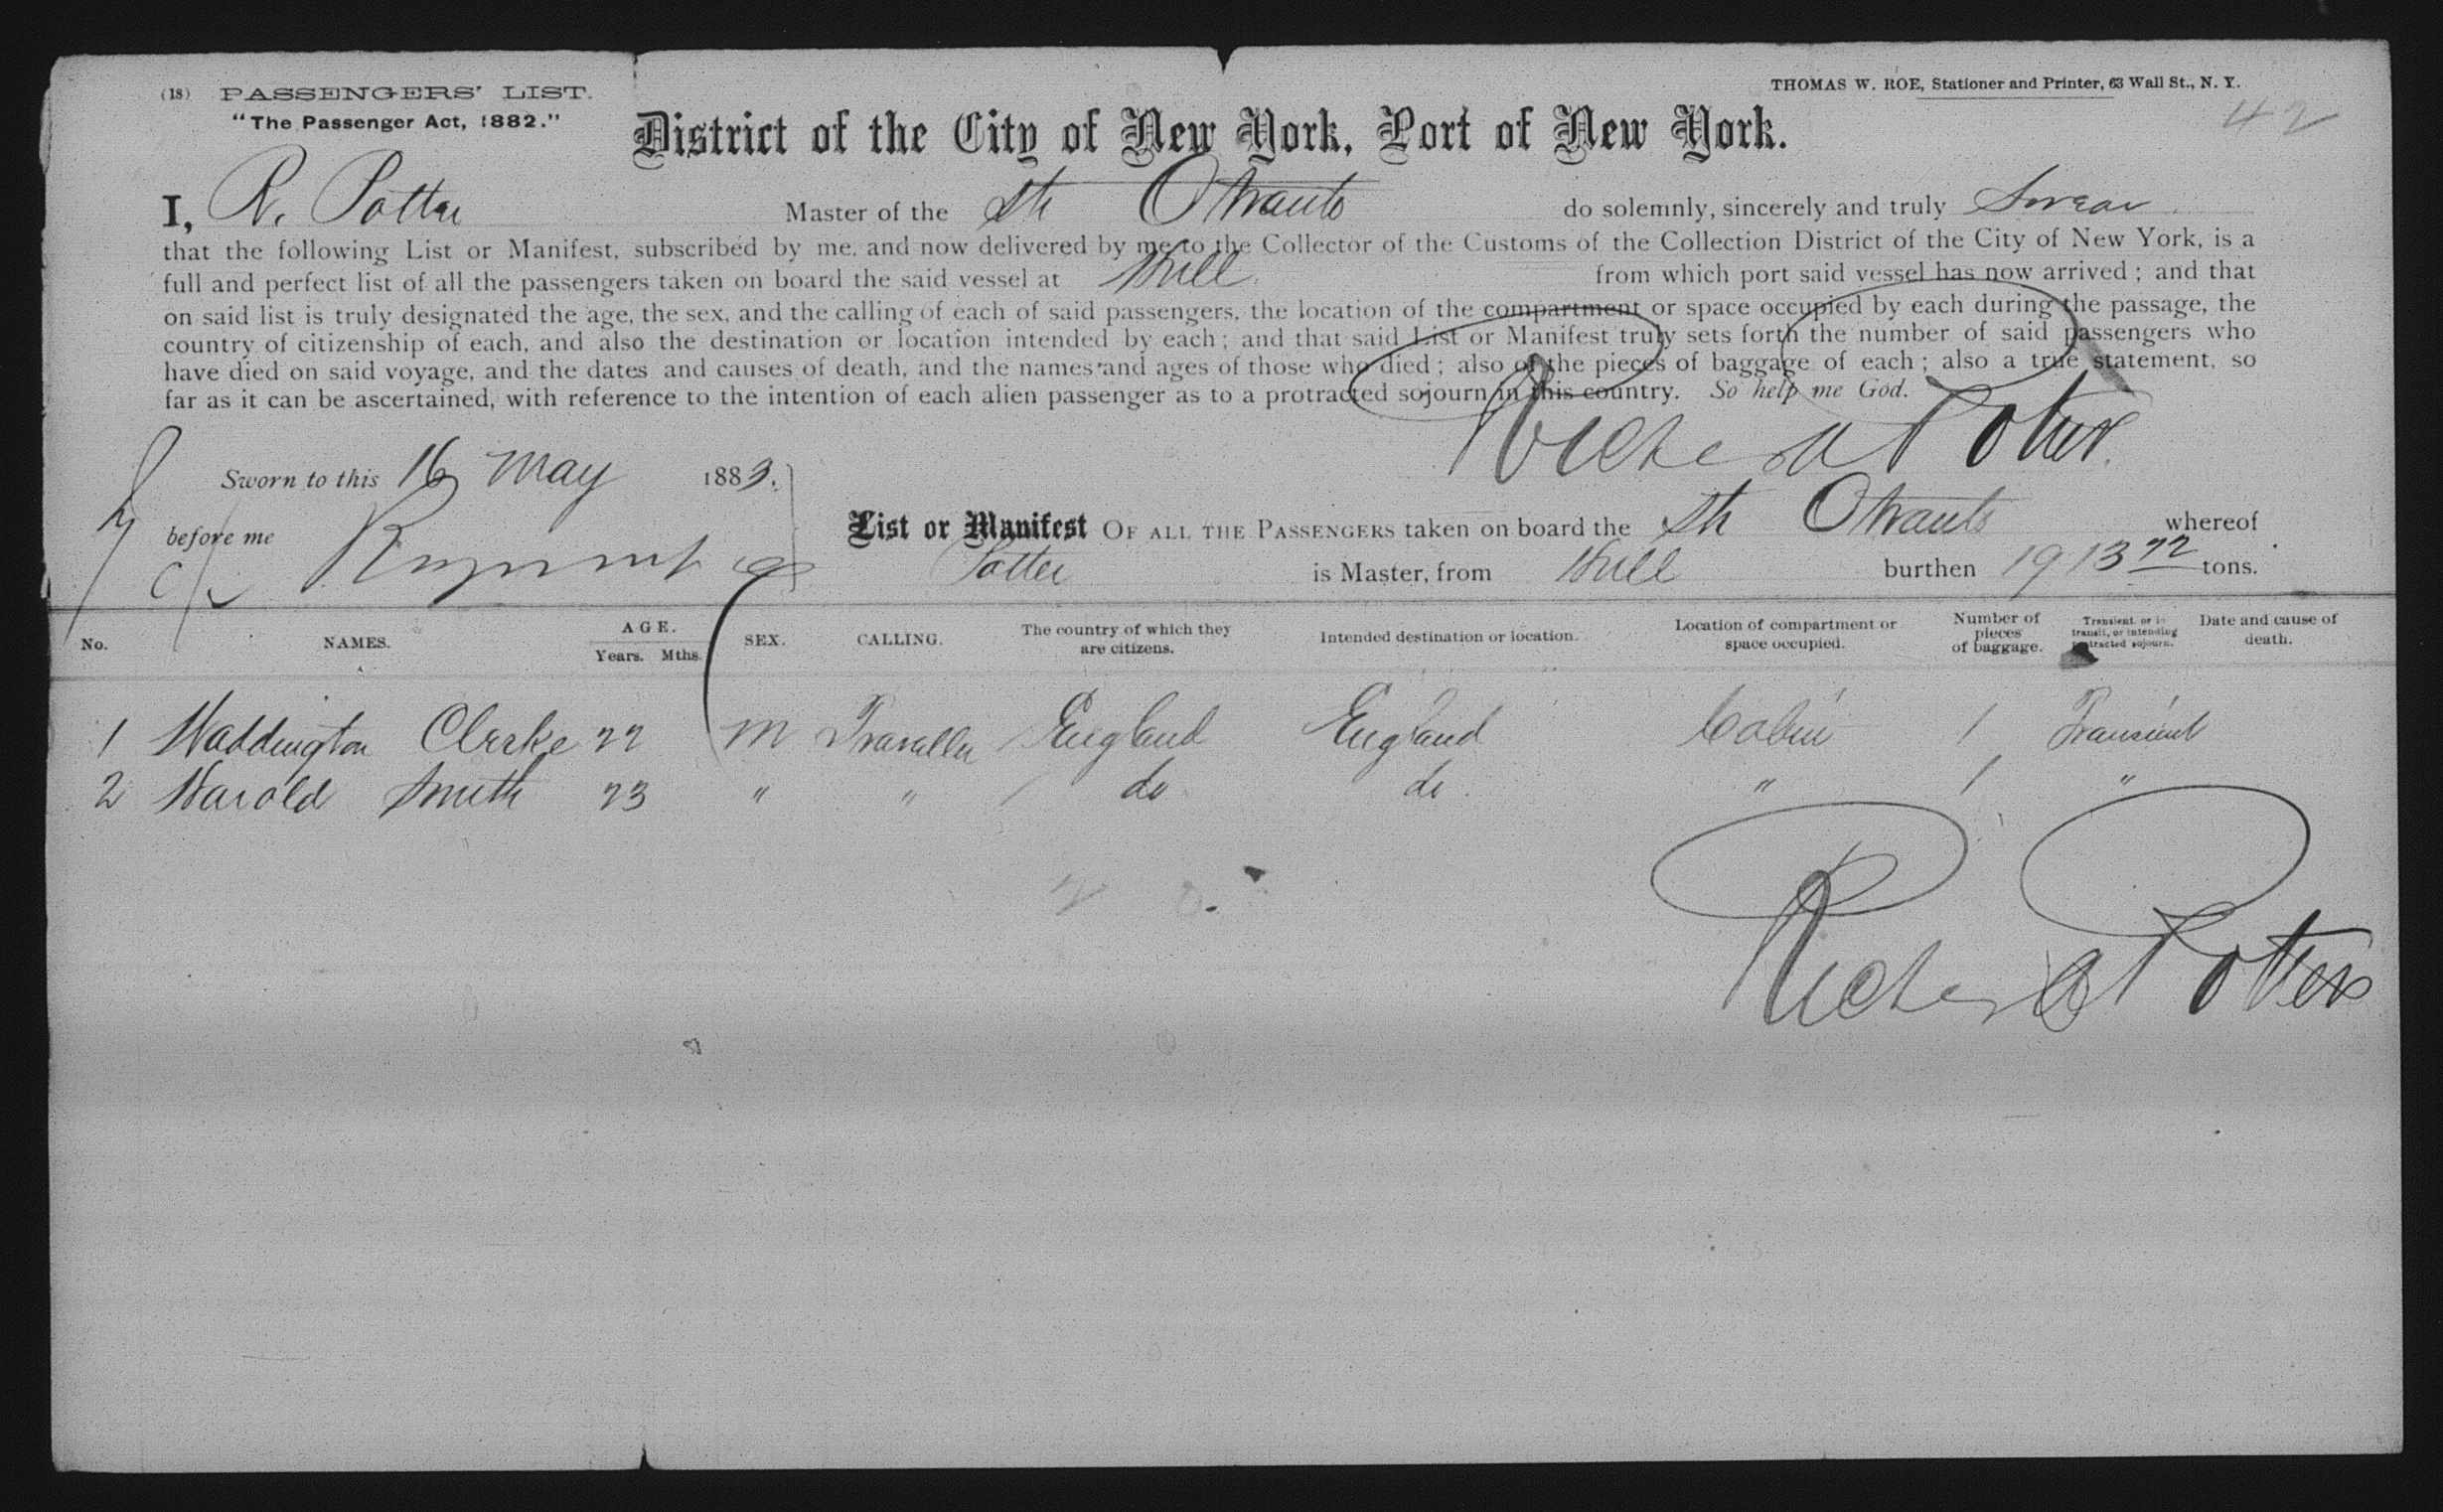 (18) PASSENGERS' LIST.
"The Passenger Act, 1882."
THOMAS W. ROE, Stationer and Printer, 63 Wall St., N. Y.
42
District of the City of New York, Port of New York.
I, R. Potter Master of the Str Otranto do solemnly, sincerely and truly Swear
that the following List or Manifest, subscribed by me, and now delivered by me to the Collector of the Customs of the Collection District of the City of New York, is a
full and perfect list of all the passengers taken on board the said vessel at Hull from which port said vessel has now arrived; and that
on said list is truly designated the age, the sex, and the calling of each of said passengers, the location of the compartment or space occupied by each during the passage, the
country of citizenship of each, and also the destination or location intended by each; and that said List or Manifest truly sets forth the number of said passengers who
have died on said voyage, and the dates and causes of death, and the names and ages of those who died; also of the pieces of baggage of each; also a true statement, so
far as it can be ascertained, with reference to the intention of each alien passenger as to a protracted sojourn in this country. So help me God.
Richard Potter
Sworn to this 16 May 1883.
before me
List or Manifest OF ALL THE PASSENGERS taken on board the Str Otranto whereof
Potter is Master, from Hull burthen 1913 72 tons.
No. NAMES. AGE. Years. Mths. SEX. CALLING. The country of which they are citizens. Intended destination or location. Location of compartment or space occupied. Number of pieces of baggage. Transient, or in transit, or intending protracted sojourn. Date and cause of death.
1 Waddington Clarke 22 M Traveller England England Cabin 1 Transient
2 Harold Smith 23 " " do do " 1 "
Richard Potter